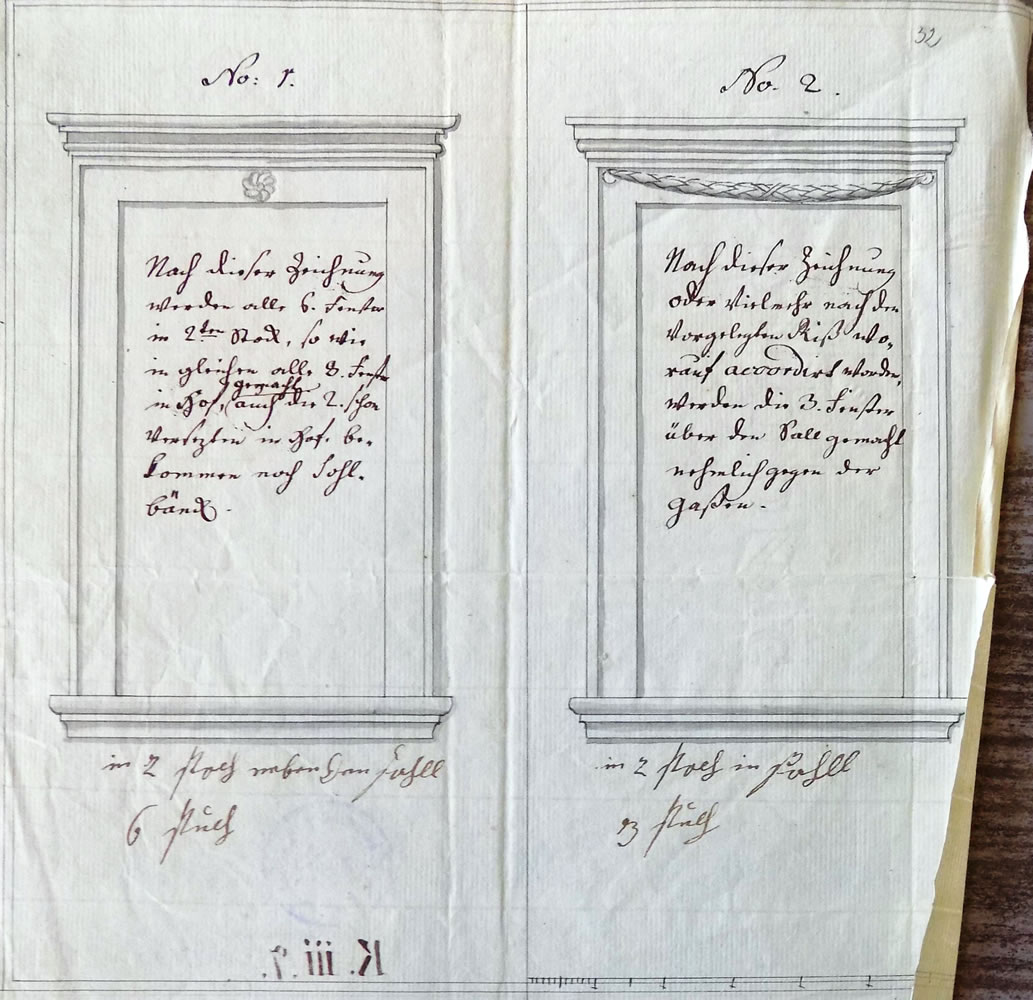 32
No: 1.
Nach dieser Zeichnung
werden alle 6. Fenster
in 2ten Stock, so wie
in gleichen alle 3. Fenster
gemacht
in Hof, auch die 2. schon
versezten in Hof. be-
kommen noch Sohl-
bänck.
in 2 stoch neben den sahll
6 stuch
K. iii.
No. 2.
Nach dieser Zeichnung
oder Vielmehr nach den
Vorgelegten Riß wo-
rauf accordirt worden,
werden die 3. Fenster
über den Sall gemacht
nehmlich gegen der
Gaßen.
in 2 stoch in sahll
3 stuch